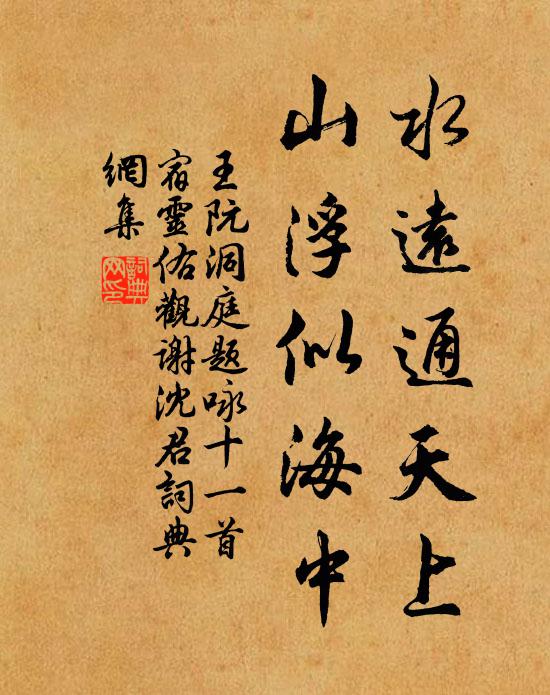 水遠通天上
山浮似海中
王阮洞庭題咏十一首
宿靈佑觀謝沈君詞典
網集
詞典
网印